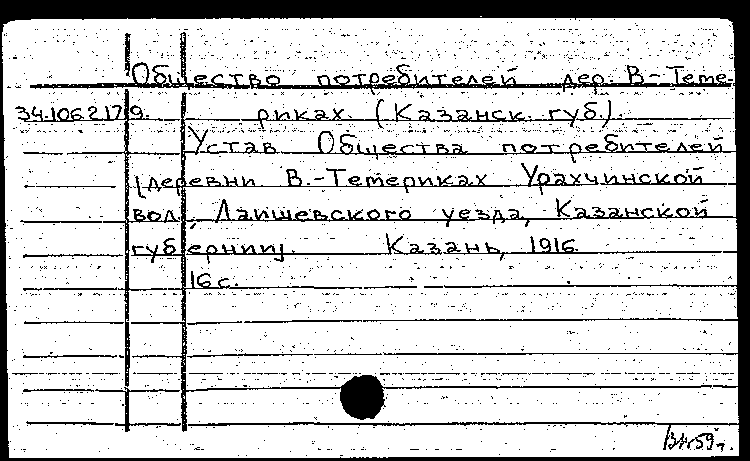 Общество потребителей дер. В-Тете-
34.106.217 9. риках. (Казанск. губ.).
Устав Общества потребителей
[деревни В.-Тетериках Урахчинской
вол., Лаишевского уезда, Казанской
губернии]. Казань, 1916.
16 с.